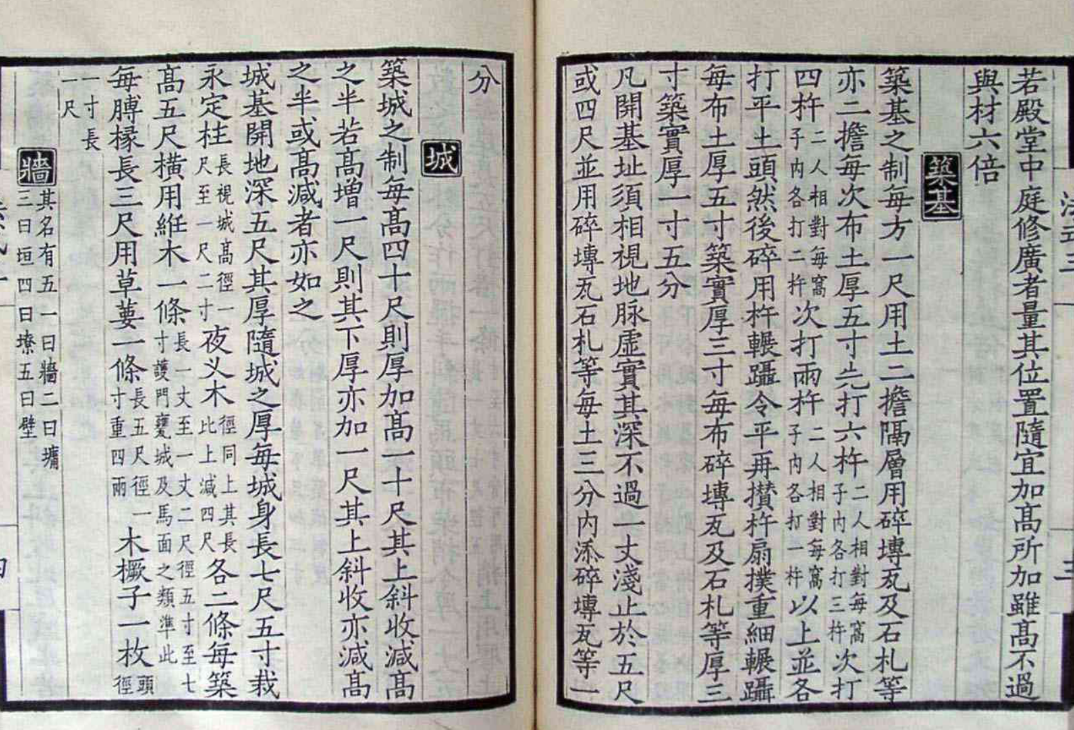 若殿堂中庭修廣者量其位置隨宜加高所加雖高不過
與材六倍
築基
築基之制每方一尺用土二擔隔層用碎塼瓦及石札等
亦二擔每次布土厚五寸先打六杵二人相對每窩子内各打三杵次打
四杵二人相對每窩子内各打二杵次打兩杵二人相對每窩子内各打一杵以上並各
打平土頭然後碎用杵輾躡令平再攢杵扇撲重細輾躡
每布土厚五寸築實厚三寸每布碎塼瓦及石札等厚三
寸築實厚一寸五分
凡開基址須相視地脉虛實其深不過一丈淺止於五尺
或四尺並用碎塼瓦石札等每土三分内添碎塼瓦等一
分
城
築城之制每高四十尺則厚加高一十尺其上斜收減高
之半若高增一尺則其下厚亦加一尺其上斜收亦減高
之半或高減者亦如之
城基開地深五尺其厚隨城之厚每城身長七尺五寸栽
永定柱長視城高徑一尺至一尺二寸夜义木徑同上其長比上減四尺各二條每築
高五尺橫用絍木一條長一丈至一丈二尺徑五寸至七寸護門甕城及馬面之類準此
每膊椽長三尺用草葽一條長五尺徑一寸重四兩木橛子一枚頭徑
一寸長一尺
牆其名有五一曰牆二曰墉三曰垣四曰㙩五曰壁